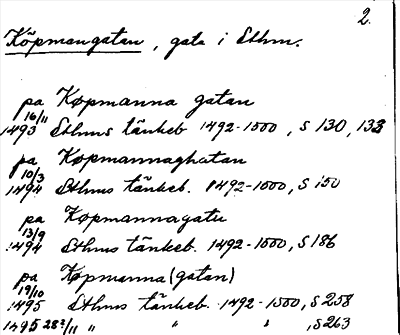 2.
Köpmangatan, gata i Sthm.
pa Køpmanna gatan
16/11
1493 Sthms tänkeb 1492-1500, s 130, 133
pa Køpmannaghatan
10/3
1494 Sthms tänkeb. 1492-1500, s 150
pa Køpmannagatu
13/9
1494 Sthms tänkeb. 1492-1500, s 186
pa Køpmanna (gatan)
19/10
1495 Sthms tänkeb. 1492-1500, s 258
1495 28/11 " " " , s 263